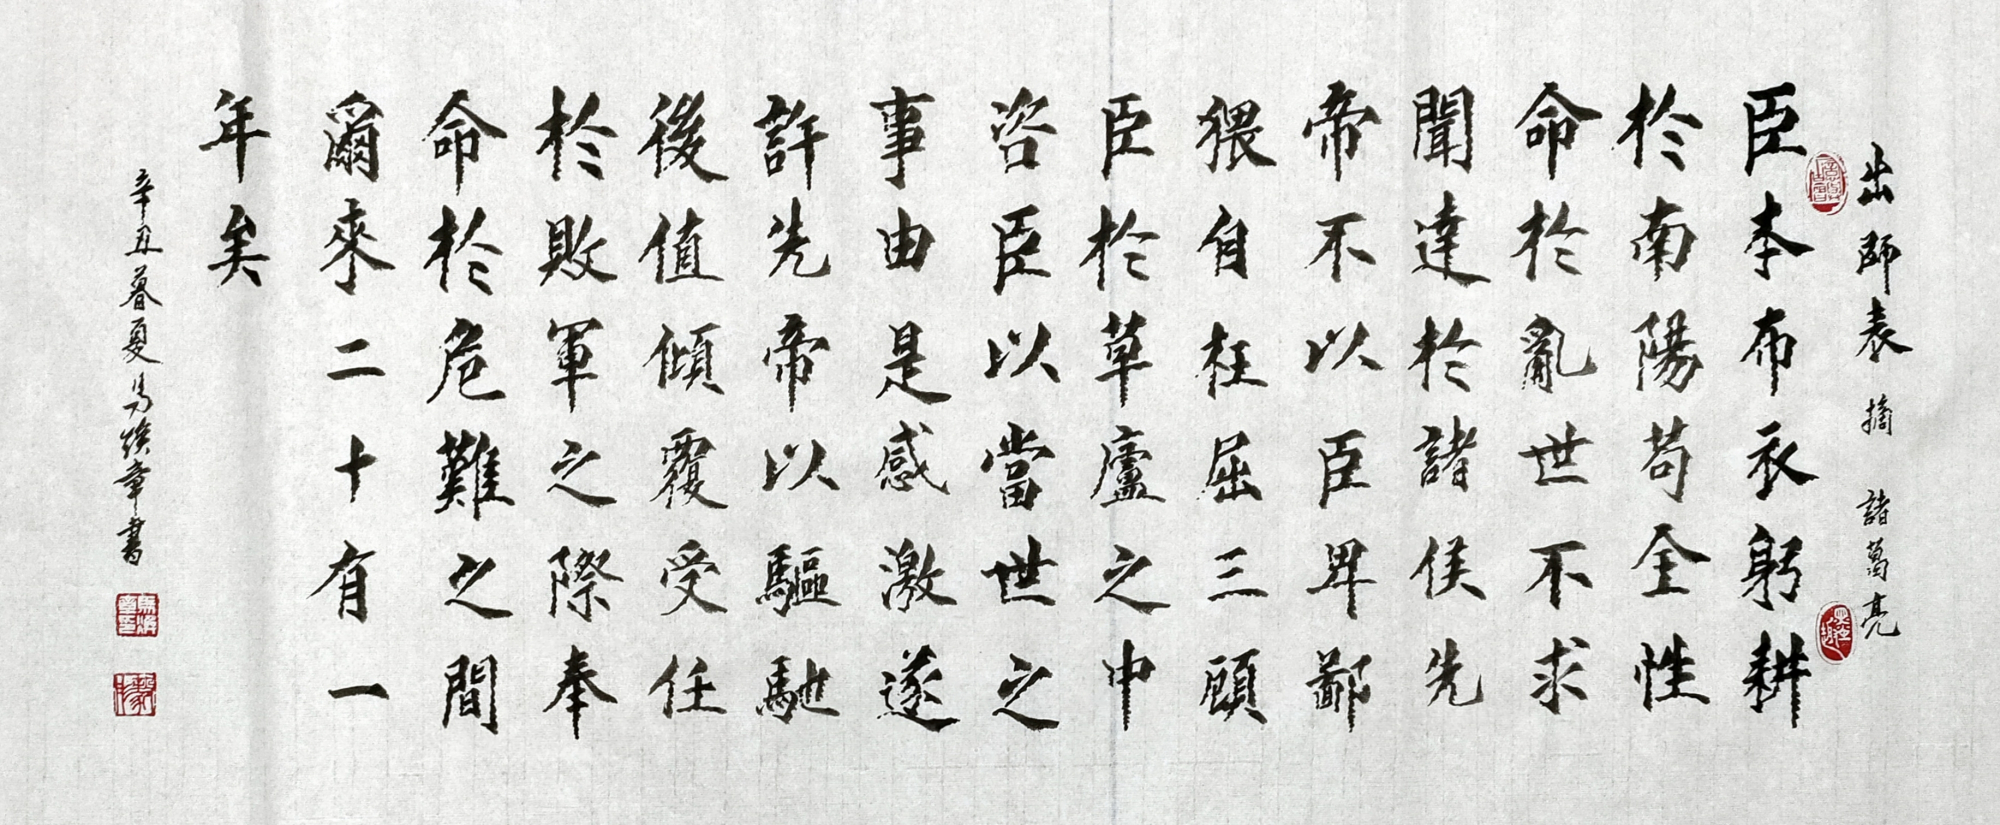 出師表 摘 諸葛亮
臣本布衣躬耕
於南陽苟全性
命於亂世不求
聞達於諸侯先
帝不以臣卑鄙
猥自枉屈三顧
臣於草廬之中
咨臣以當世之
事由是感激遂
許先帝以驅馳
後值傾覆受任
於敗軍之際奉
命於危難之間
爾來二十有一
年矣
辛丑暮夏馬煥章書